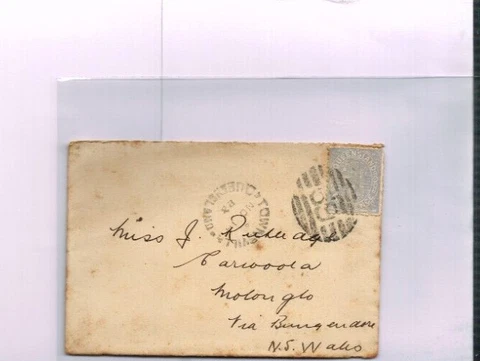 TOWNSVILLE QUEENSLAND
Miss J. Rutledge
Carwoola
Molonglo
Via Bungendore
N.S. Wales